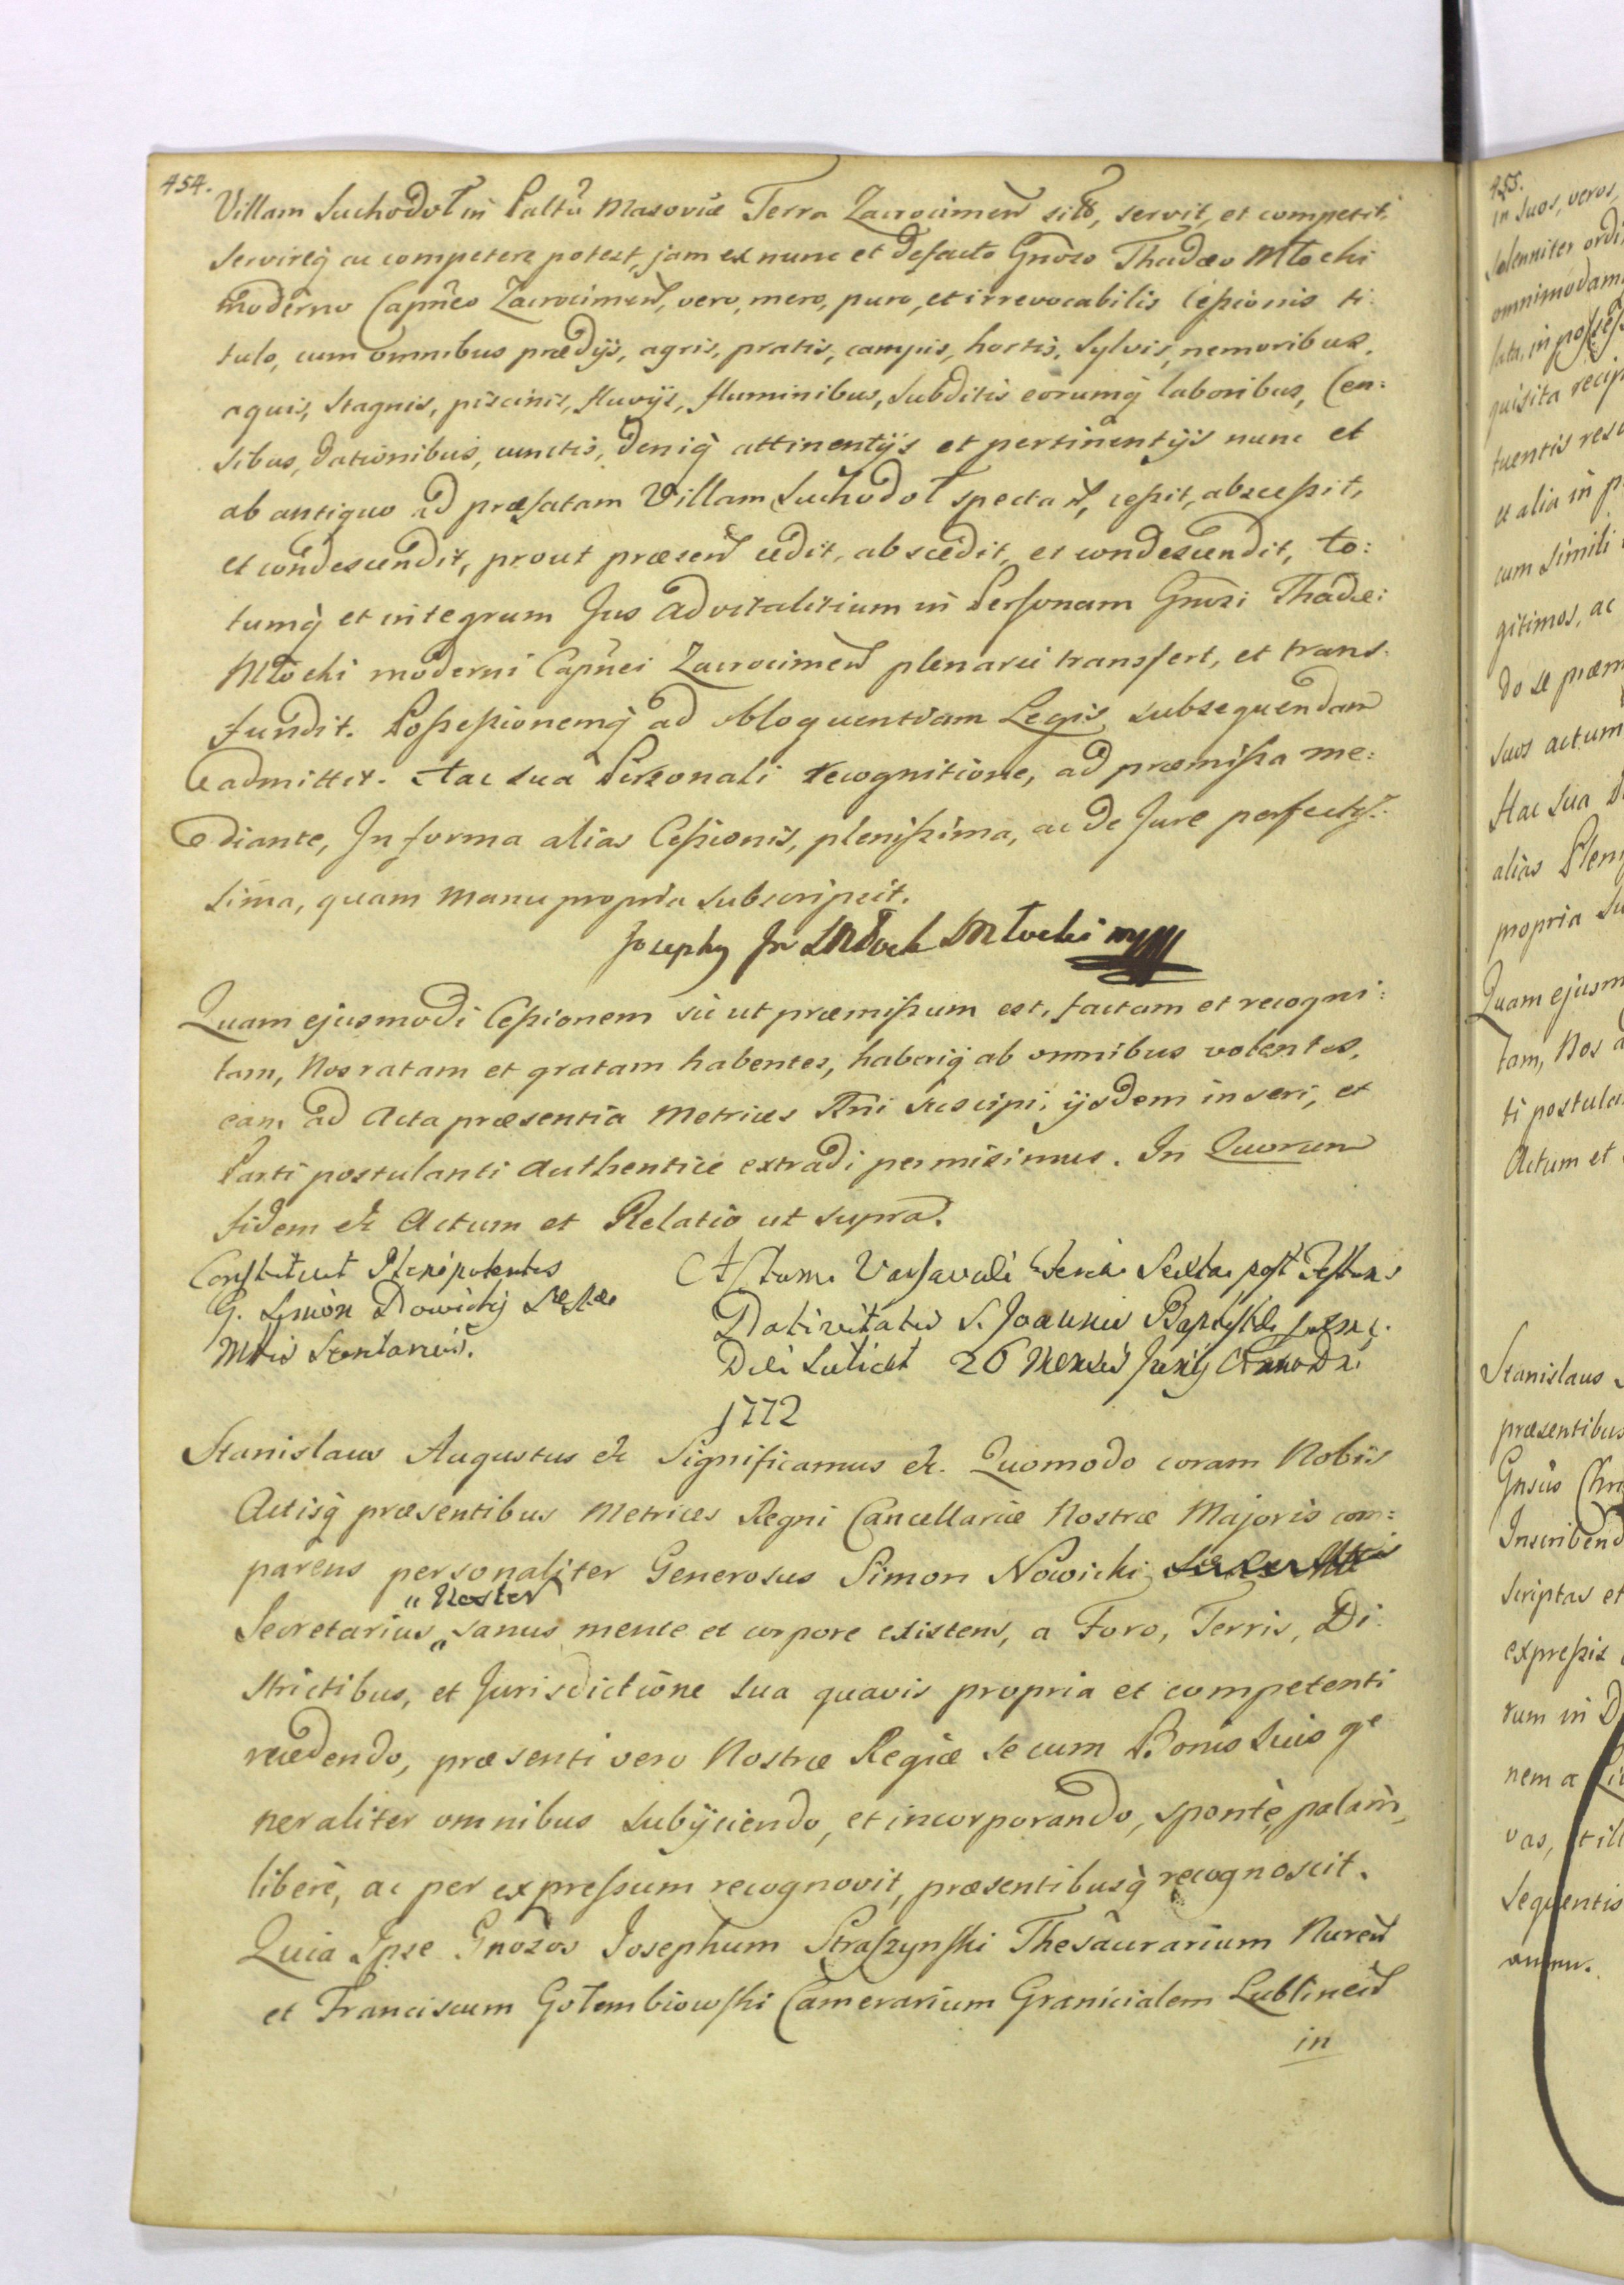 454.
Villam Suchodoł in Palttũ Masoviæ Terra Zacrocimeñ sitõ, servit, et competit,
servireq̀ ac competere potest, jam ex nunc et de facto Gnõso Thadæo Młocki
moderno Capñeo Zacrocimeñ, vero, mero, puro, et irrevocabilis Cessionis ti:
tulo, cum omnibus prædijs, agris, pratis, campis, hortis, Sylvis, nemoribus,
aquis, Stagnis, piscinis, fluvijs, fluminibus, subditis eorumq̀ laboribus, Cen:
sibus, dationibus, cunctis, deniq̀ attinentijs et pertinentijs nunc et
ab antiquo ad præfatam Villam Suchodoł spectañ, cessit, abscessit,
et condescendit, prout præseñ cedit, abscedit, et condescendit, to:
tumq̀ et integrum Jus advitalitium in Personam Gnõsi Thadæi
Młocki moderni Capñei Zacrocimeñ plenarie transfert, et trans:
fundit. Possessionemq̀ ad obloquentiam Legis subsequendam
admittit. Hac sua Personali recognitione, ad præmissa me:
diante, In forma alias Cessionis, plenissima, ac de Jure perfectis:
sima, quam manu propria subscripsit.
Josephus In Młock Młocki mpp
Quam ejusmodi Cessionem sic ut præmissum est, factam et recogni:
tam, Nos ratam et gratam habentes, haberiq̀ ab omnibus volentes,
eam ad Acta præsentia Metrices Rñi suscipi, ijsdem inseri, et
Parti postulanti authentice extradi permisimus. In Quorum
fidem etc Actum et Relatio ut supra.
Constituit Plenipotentes
G. Simon Nowicky
Mtis Secretarius.
Actum Varsaviæ Feria Sexta post Festum
Nativitatis S. Joannis Baptistæ
Die Scilicet 26 Mensis Junij Anno Dñi
1772
Stanislaus Augustus etc Significamus etc. Quomodo coram Nobis
Actisq̀ præsentibus Metrices Regni Cancellariæ Nostræ Majoris com:
parens personaliter Generosus Simon Nowicki
" Noster
Secretarius " sanus mente et corpore existens, a Foro, Terris, Di:
strictibus, et Jurisdictione sua quavis propria et competenti
recedendo, præsenti vero Nostræ Regiæ se cum Bonis suis ge
neraliter omnibus subijciendo, et incorporando, spontè, palàm,
liberè, ac per expressum recognovit, præsentibusq̀ recognoscit.
Quia Ipse Gnõsos Josephum Straszynski Thesaurarium Nureñ
et Franciscum Gołembiowski Camerarium Granicialem Lublineñ
in
455.
in suos, veros,
solenniter ordi
omnimodam
quisita recip
tuentis res
et alia in p
cum simili
gitimos, ac
do se præm
suos actum
Hac sua
alias Plen
propria su
Quam ejusm
tam, Nos
ti postula
Actum et
Stanislaus
præsentibus
Gnsus Chri
Inscribend
scriptas et
expressis
rum in D
nem a
vas, et ill
sequentis